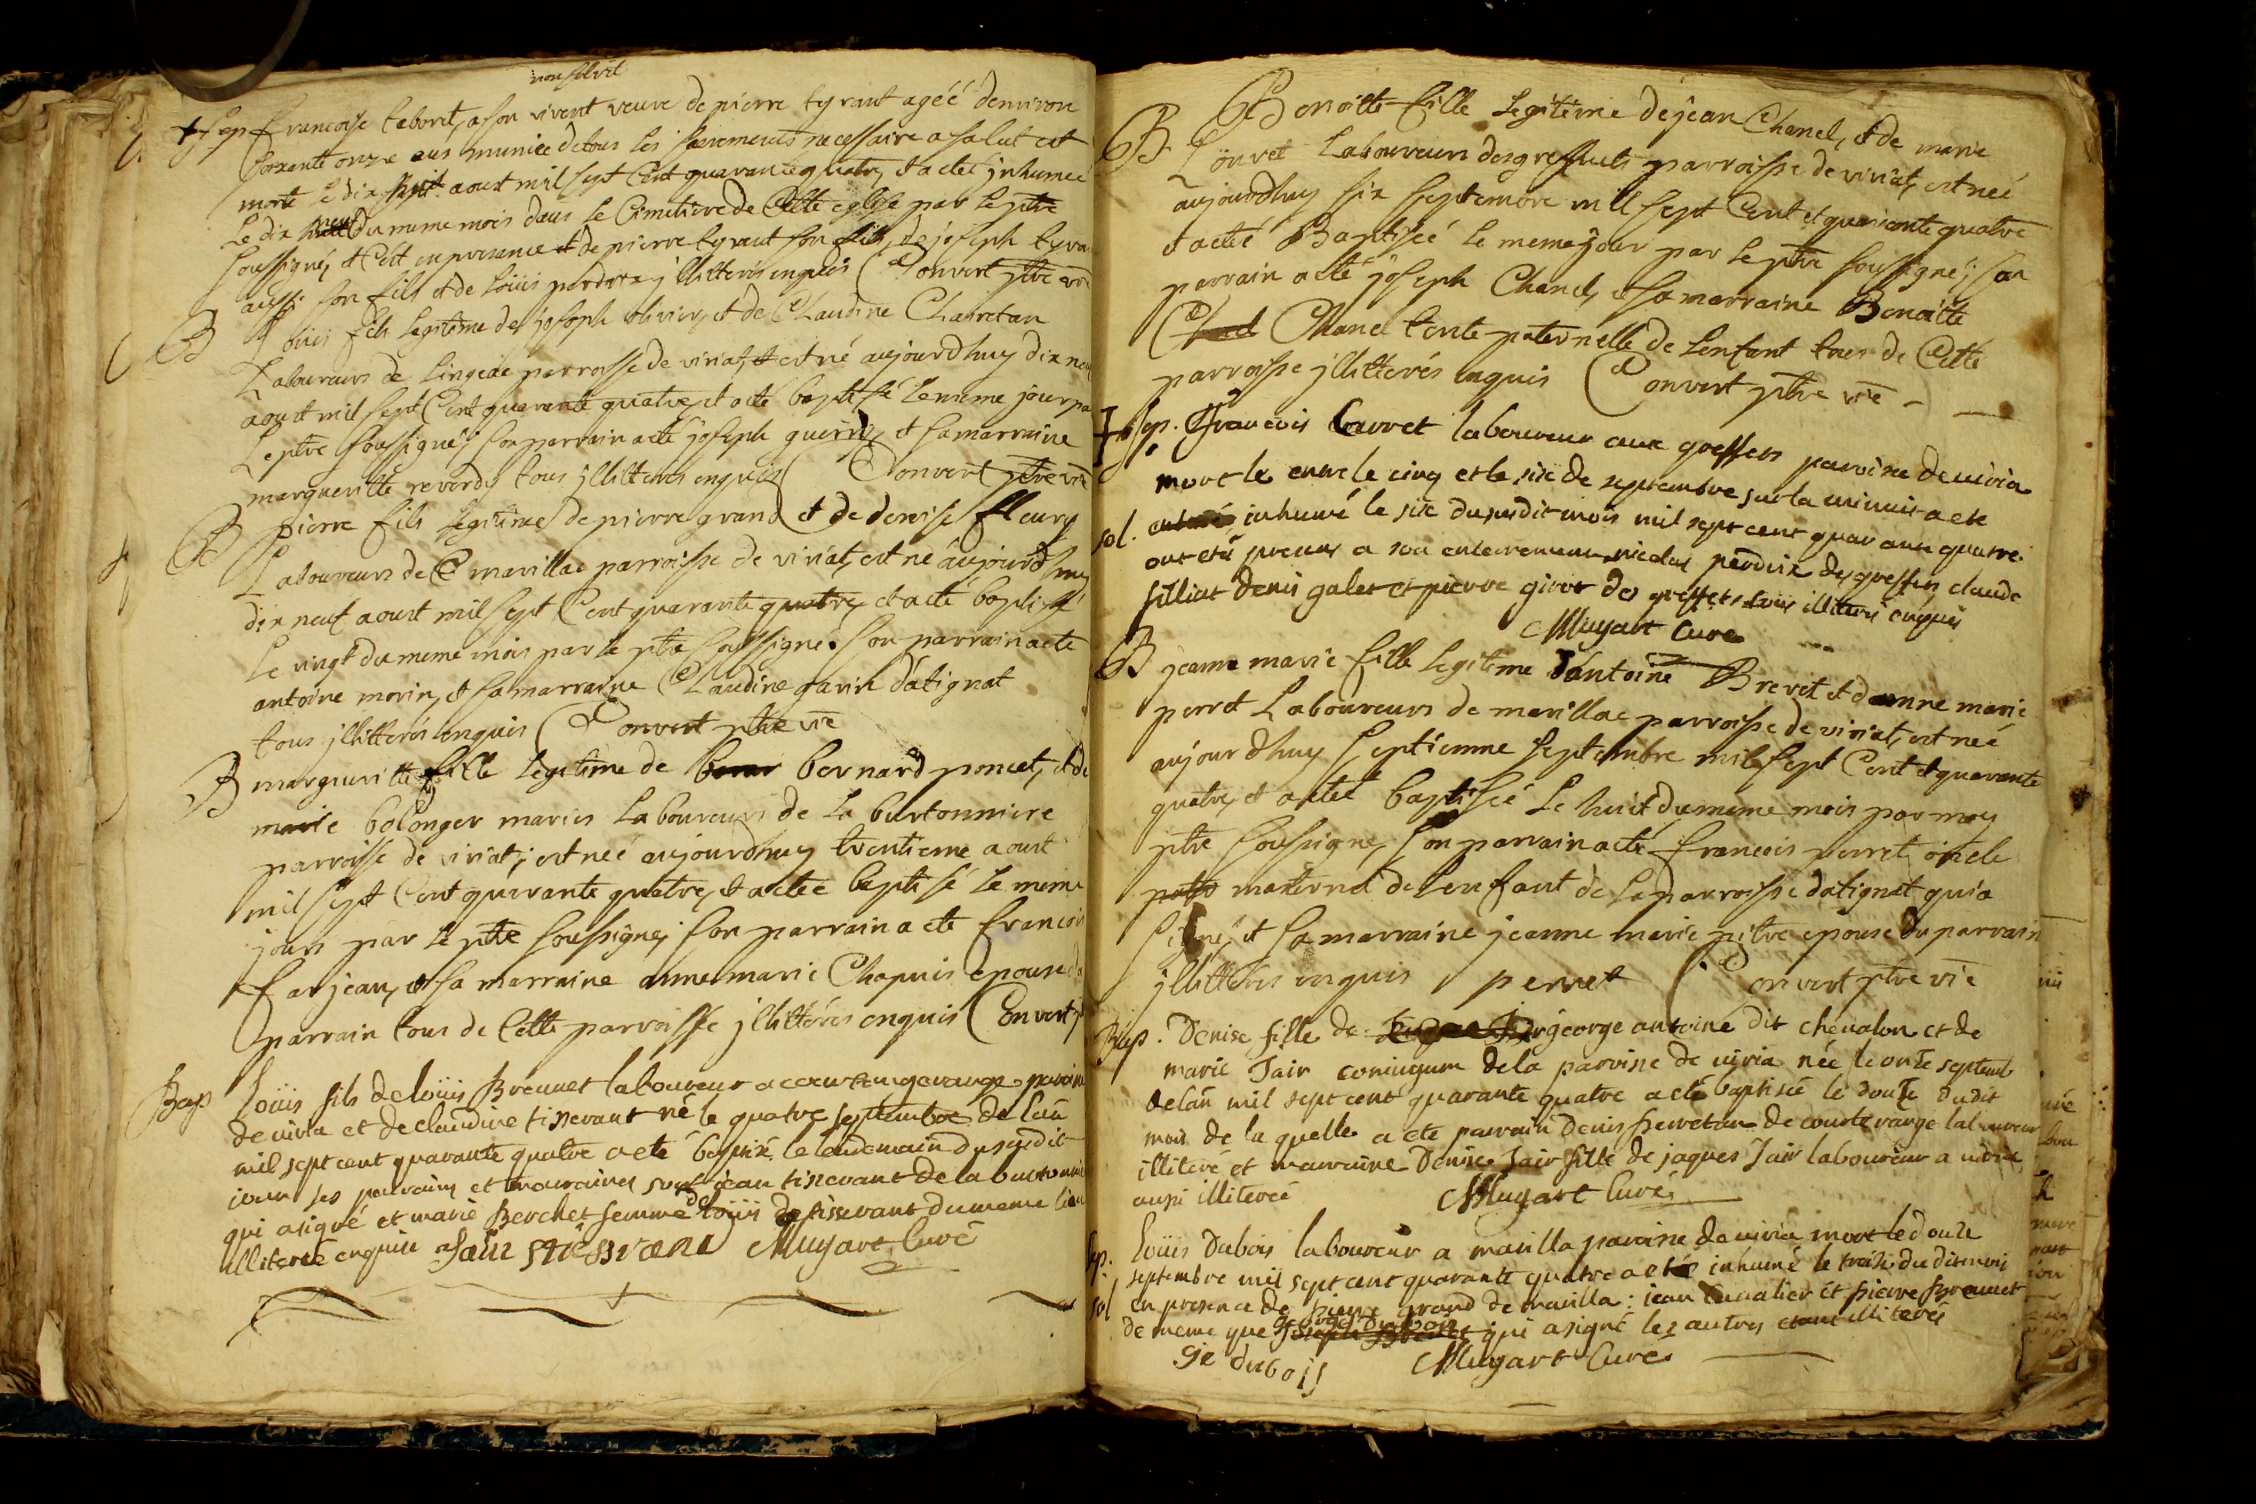 non solvit
+ sep francoise tebort, a son vivent veuve de pierre tyrant ageé denviron
soixante onze ans munice de tous les sacrements necessaire a salut est
morte le dix huit aoust mil sept Cent quarante quatre, et a cteé jnhumeé
Le dix neuf du meme mois dans le Cimetiere de Cette eglise par le ptre
soussigné, et Cest en presance et de pierre tyrant son fils, de joseph tyran
aussi son fils et de Loüis perdrix jllitterés enquis Convert ptre vre
B Loüis fils legitime de joseph olivier, et de Claudine Charretan
Laboureurs de Lingeat parroisse de viriat, est né aujourdhuy dix neuf
aoust mil sept Cent quarante quatre, et a eté baptisé le meme jour pa
Le ptre soussigné; son parrain a eté joseph guerin, et sa marraine
margueritte reverdy tous jllitterés enquis Convert ptre vre
B pierre fils legitime de pierre grand et de denise fleury
Laboureurs de marillac parroisse de viriat, est né aujourdhuy
dix neuf aoust mil sept Cent quarante quatre, et a eté baptisé
Le vingt du meme mois par le ptre soussigné. son parrain a eté
antoine morin, et sa marraine Claudine garin datignat
tous jllitterés enquis Convert ptre vre
B margueritte fille legitime de bernard poncet, et de
marie bolonger mariés Laboureurs de La burtonniere
parroisse de viriat; est neé aujourdhuy trentieme aoust
mil sept Cent quarante quatre, et a eteé baptisé le meme
jours par le ptre soussigné; son parrain a eté francois
farjean, et sa marraine anne marie Chapuis epouse du
parrain tous de Cette parroisse jllitterés enquis Convert p
Bap Loüis fils de loüis Brevet laboureur a courtengerange paroisse
de viria et de claudine tisserant né le quatre septembre de lan
mil sept cent quarante quatre a eté baptisé le lendemain du susdit
iour ses parrains et marraines sont iean tisserant de la burtonnie
qui a signé et marie Berchet femme de loüis tisserant du meme lieu
illiterée enquise Jan Muyart Curé
B Benoitte fille Legitime de jean Chanel, et de marie
Convet Laboureurs des greffets parroisse de viriat, est neé
aujourdhuy six septembre mil sept Cent et quarante quatre
et a eteé Baptiseé le meme jour par le ptre soussigné; son
parrain a eté joseph Chanel, et sa marraine Benoitte
Chanel tente paternelle de lenfant tous de Cette
parroisse jllitterés enquis Convert ptre vre
+ sep. Francois Carret laboureur aux greffets paroisse de viria
mort le entre le cinq et le six de septembre sur la minuit a eté
sol. inhumé le six du susdit mois mil sept cent quarante quatre.
ont etés presens a son enterrement nicolas perdrix des greffets, claude
filliat denis galet et pierre girot des greffets tous illiterés enquis
Muyart Curé
B jeanne marie fille legitime dantoine Brevet et danne marie
perret Laboureurs de marillac parroisse de viriat, est neé
aujourdhuy septiemme septembre mil sept Cent et quarante
quatre, et a eteé baptiseé le huit du meme mois par moy
ptre soussigné, son parrain a eté francois perret oncle
maternel de lenfant de la parroisse datignat qui a
signé, et sa marraine jeanne marie pitre epouse du parrain
jllitterés enquis perret Convert ptre vre
Bap. Denise fille de george antoine dit chevalon et de
marie Jair coniugum de la paroisse de viria née le onze septemb
de lan mil sept cent quarante quatre a eté baptisée le douze dudit
mois de la quelle a eté parrain Denis herretan de courterange laboureur
illiteré et marraine Denise Jair fille de jaques Jair laboureur a viria
aussi illiterée Muyart Curé
Sep. Loüis Dubois laboureur a marilla paroisse de viria mort le douze
septembre mil sept cent quarante quatre a eté inhumé le treise du dit mois
sol en presence de pierre grand de marilla: iean cavalier et pierre Brevet
de meme que george Dubois qui a signé les autres etant illiterés
ge dubois Muyart Curé